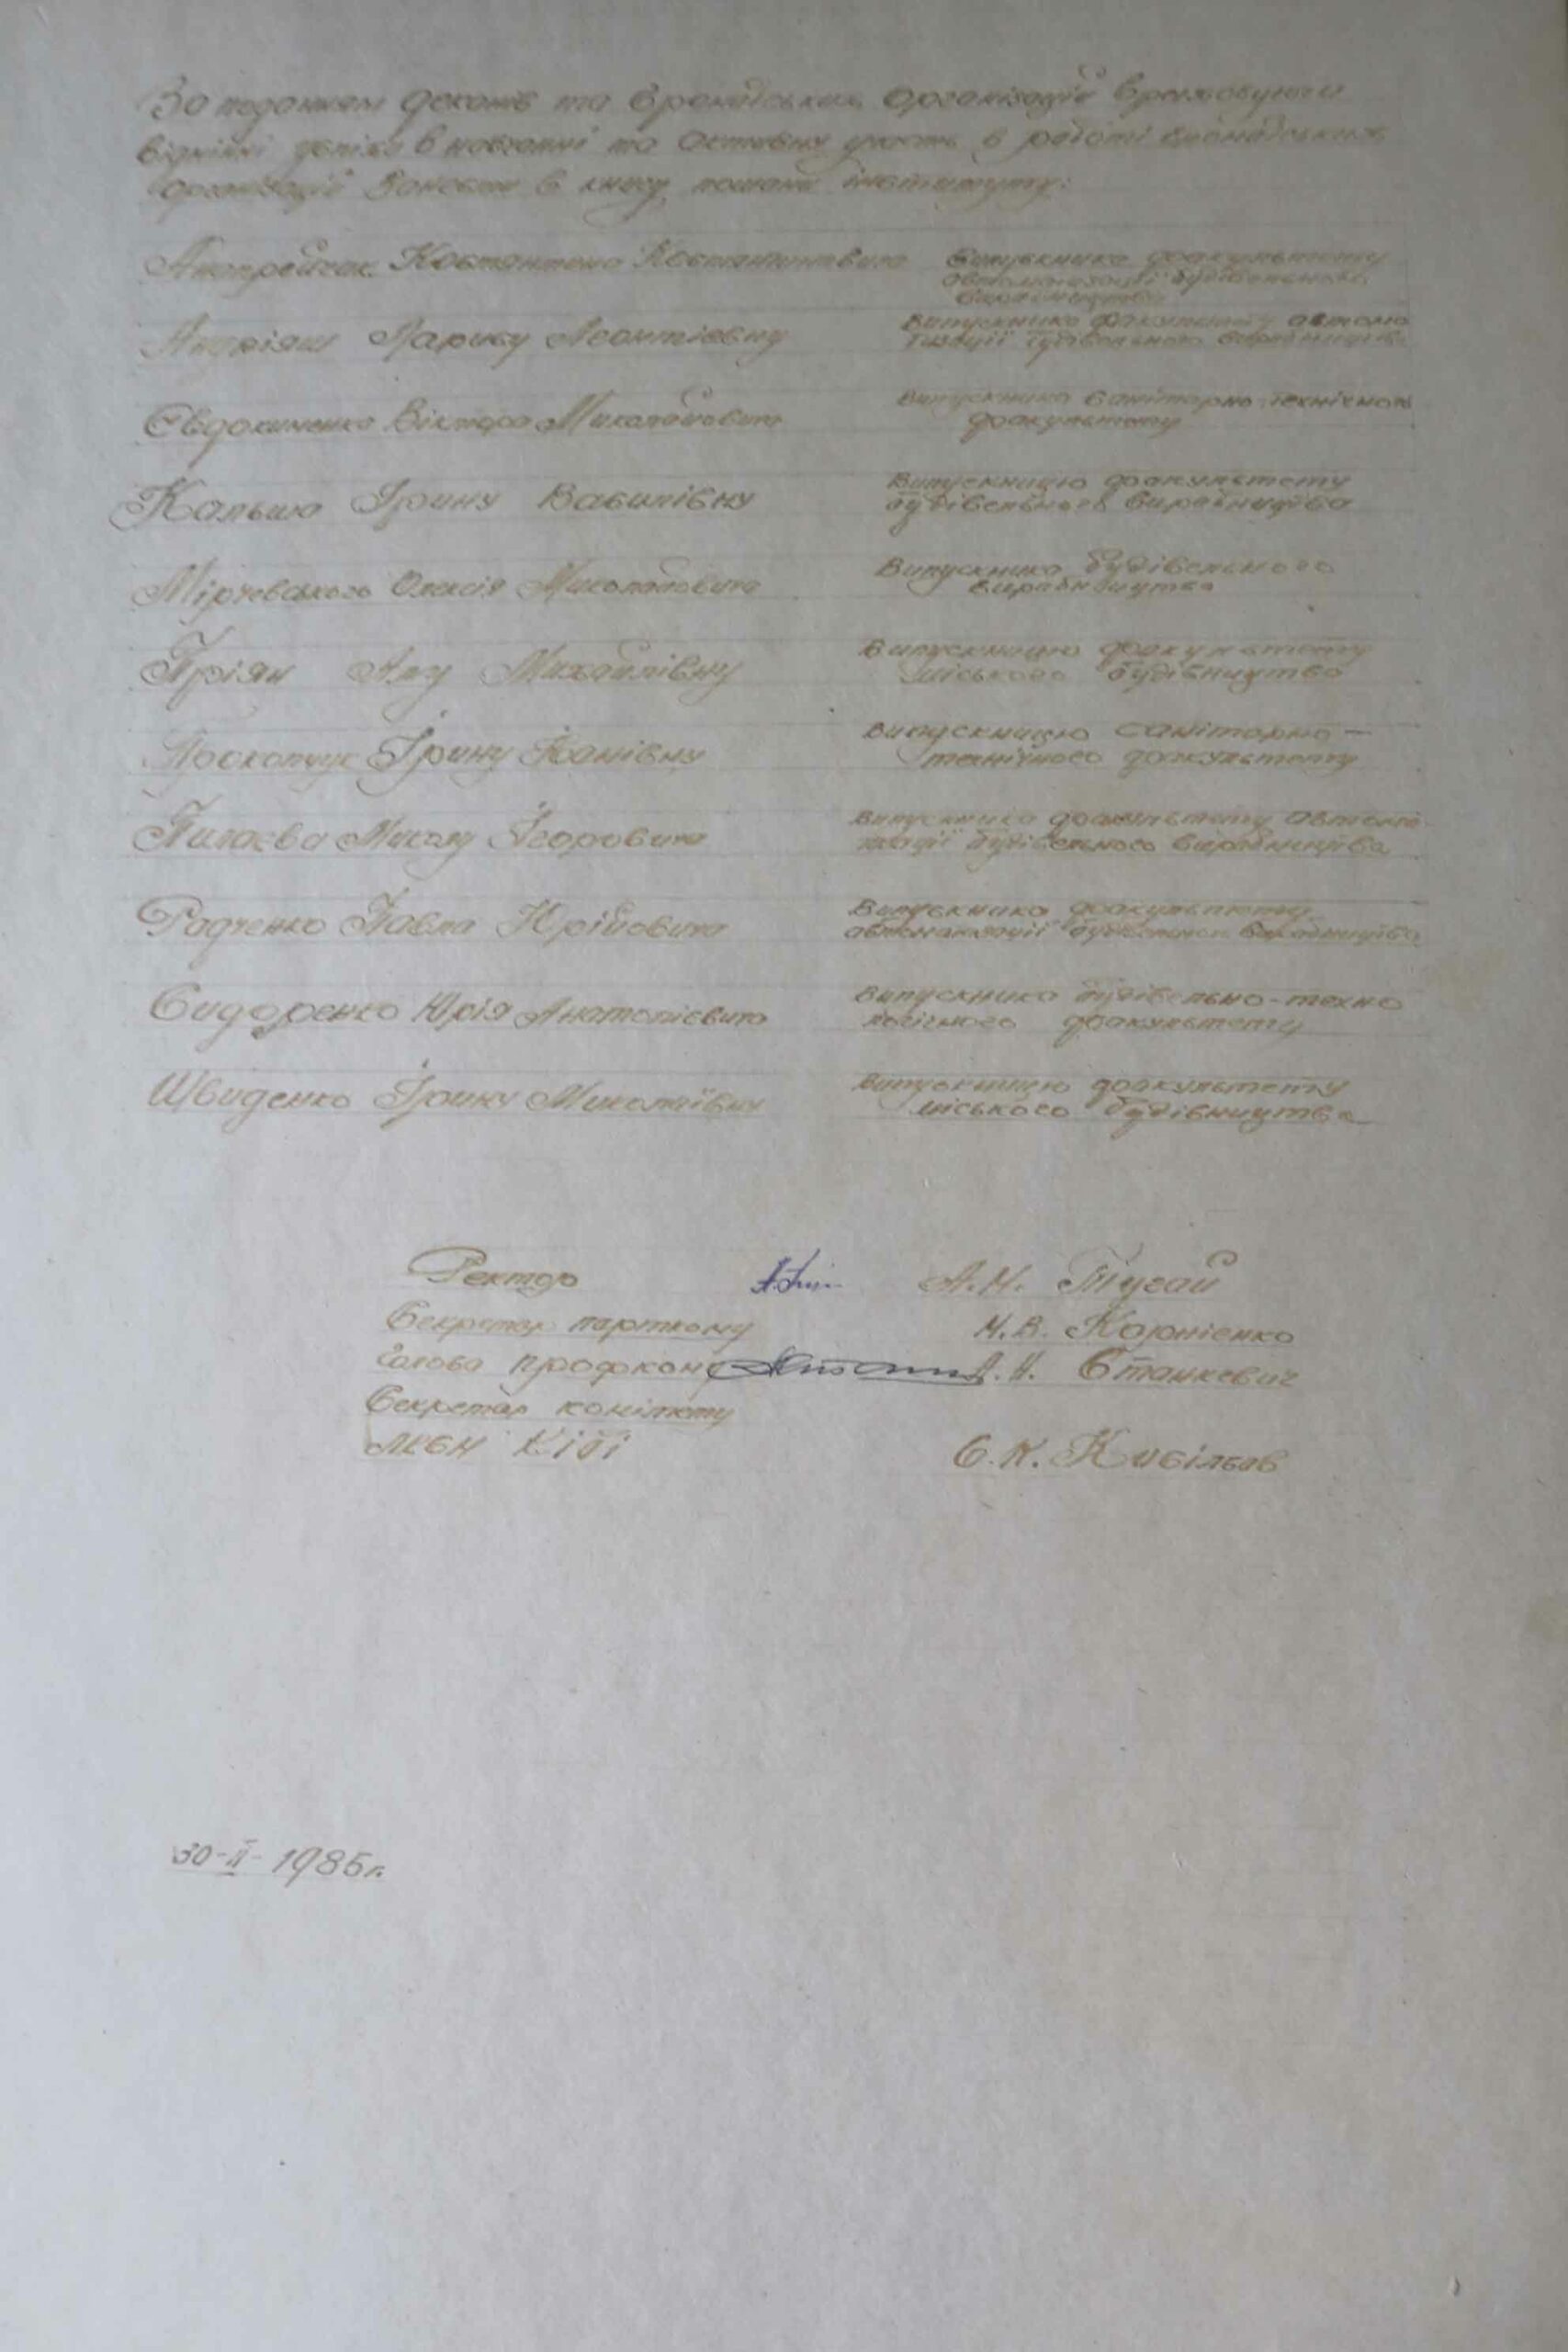 За поданням деканів та громадських організацій враховуючи
відмінні успіхи в навчанні та активну участь в роботі громадських
організацій занесені в книгу пошани інституту:
Костянтина Костянтиновича Випускника факультету
автоматизації будівельного
виробництва
Андріяш Ларису Леонтіївну Випускника факультету автома
тизації будівельного виробництва
Євдокименко Віктора Миколайовича Випускника санітарно-технічного
факультету
Кальшо Ірину Василівну Випускницю факультету
будівельного виробництва
Мірчевського Олексія Миколайовича Випускника будівельного
виробництва
Пріян Аллу Михайлівну Випускницю факультету
міського будівництва
Прокопчук Ірину Іванівну Випускницю санітарно-
технічного факультету
Пилаєва Миколу Ігоровича Випускника факультету автома
тизації будівельного виробництва
Радченко Павла Юрійовича Випускника факультету
автоматизації будівельного виробництва
Сидоренко Юрія Анатолієвича Випускника будівельно-техно
логічного факультету
Швиденко Ірину Миколаївну Випускницю факультету
міського будівництва
Ректор А.М. Тугай
Секретар парткому М.В. Корнієнко
Голова профкому А.Н. Станкевич
Секретар комітету
ЛКСМ КІБІ С.К.
30-II-1985г.